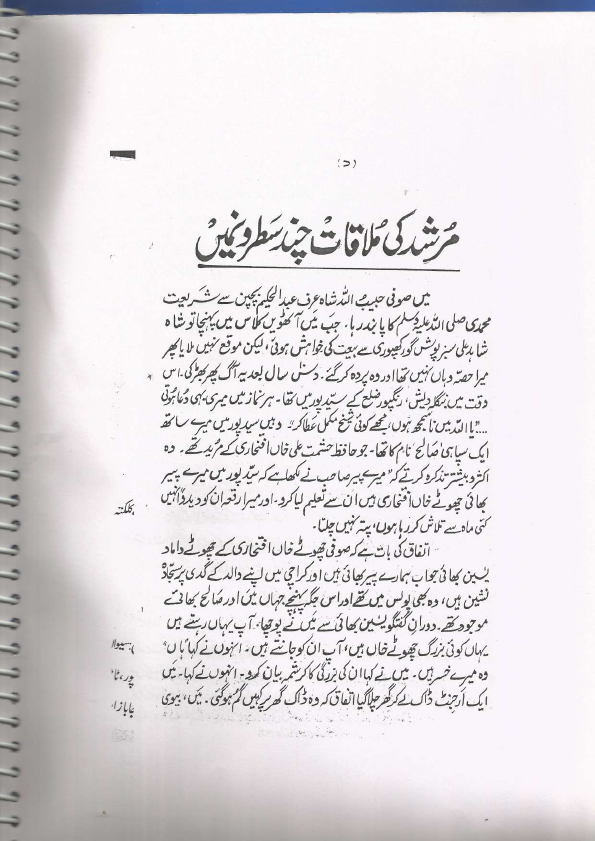 (۵)
مُرشِد کی مُلاقات چند سَطروں میں
میں صوفی حبیبُ اللہ شاہ عرف عبدالحکیم بچپن سے شریعت
محمدی صلی اللہ علیہ وسلم کا پابند رہا۔ جب میں آٹھویں کلاس میں پہنچا تو شاہ
شاہد علی سبز پوش گورکھپوری سے بیعت کی خواہش ہوئی، لیکن موقع نہیں ملا یا پھر
میرا حصہ وہاں نہیں تھا اور وہ پردہ کر گئے۔ دس سال بعد یہ آگ پھر بھڑکی۔ اس
وقت میں بنگلہ دیش، رنگپور ضلع کے سیّد پور میں تھا۔ ہر نماز میں میری یہی دُعا ہوتی
....." یا اللہ میں ناسمجھ ہوں، مجھے کوئی شیخ مکمل عطا کر" وہیں سیدپور میں میرے ساتھ
ایک سپاہی صالح نام کا تھا۔ جو حافظ حشمت علی خاں افتخاری کے مرید تھے۔ وہ
اکثر و بیشتر تذکرہ کرتے کہ "میرے پیر صاحب نے لکھا ہے کہ سیّد پور میں میرے پیر
بھائی چھوٹے خاں افتخاری ہیں ان سے تعلیم لیا کرو۔ اور میرا رقعہ ان کو دیدو" انہیں
کئی ماہ سے تلاش کر رہا ہوں، پتہ نہیں چلتا۔
اتفاق کی بات ہے کہ صوفی چھوٹے خاں افتخاری کے چھوٹے داماد
یٰسین بھائی جو اب ہمارے پیر بھائی ہیں اور کراچی میں اپنے والد کے گدی پر سجّادہ
نشین ہیں، وہ بھی پولس میں تھے اور اس جگہ پہنچے جہاں میں اور صالح بھائی
موجود تھے۔ دورانِ گفتگو یٰسین بھائی سے میں نے پوچھا۔ آپ یہاں رہتے ہیں
یہاں کوئی بزرگ چھوٹے خاں ہیں، آپ ان کو جانتے ہیں۔ انہوں نے کہا "ہاں"
وہ میرے خسر ہیں۔ میں نے کہا ان کی بزرگی کا کرشمہ بیان کرو۔ انہوں نے کہا۔ میں
ایک ارجنٹ ڈاک لے کر گھر چلا گیا اتفاق کہ وہ ڈاک گھر پر کہیں گم ہو گئی۔ میں، بیوی
کلکتہ